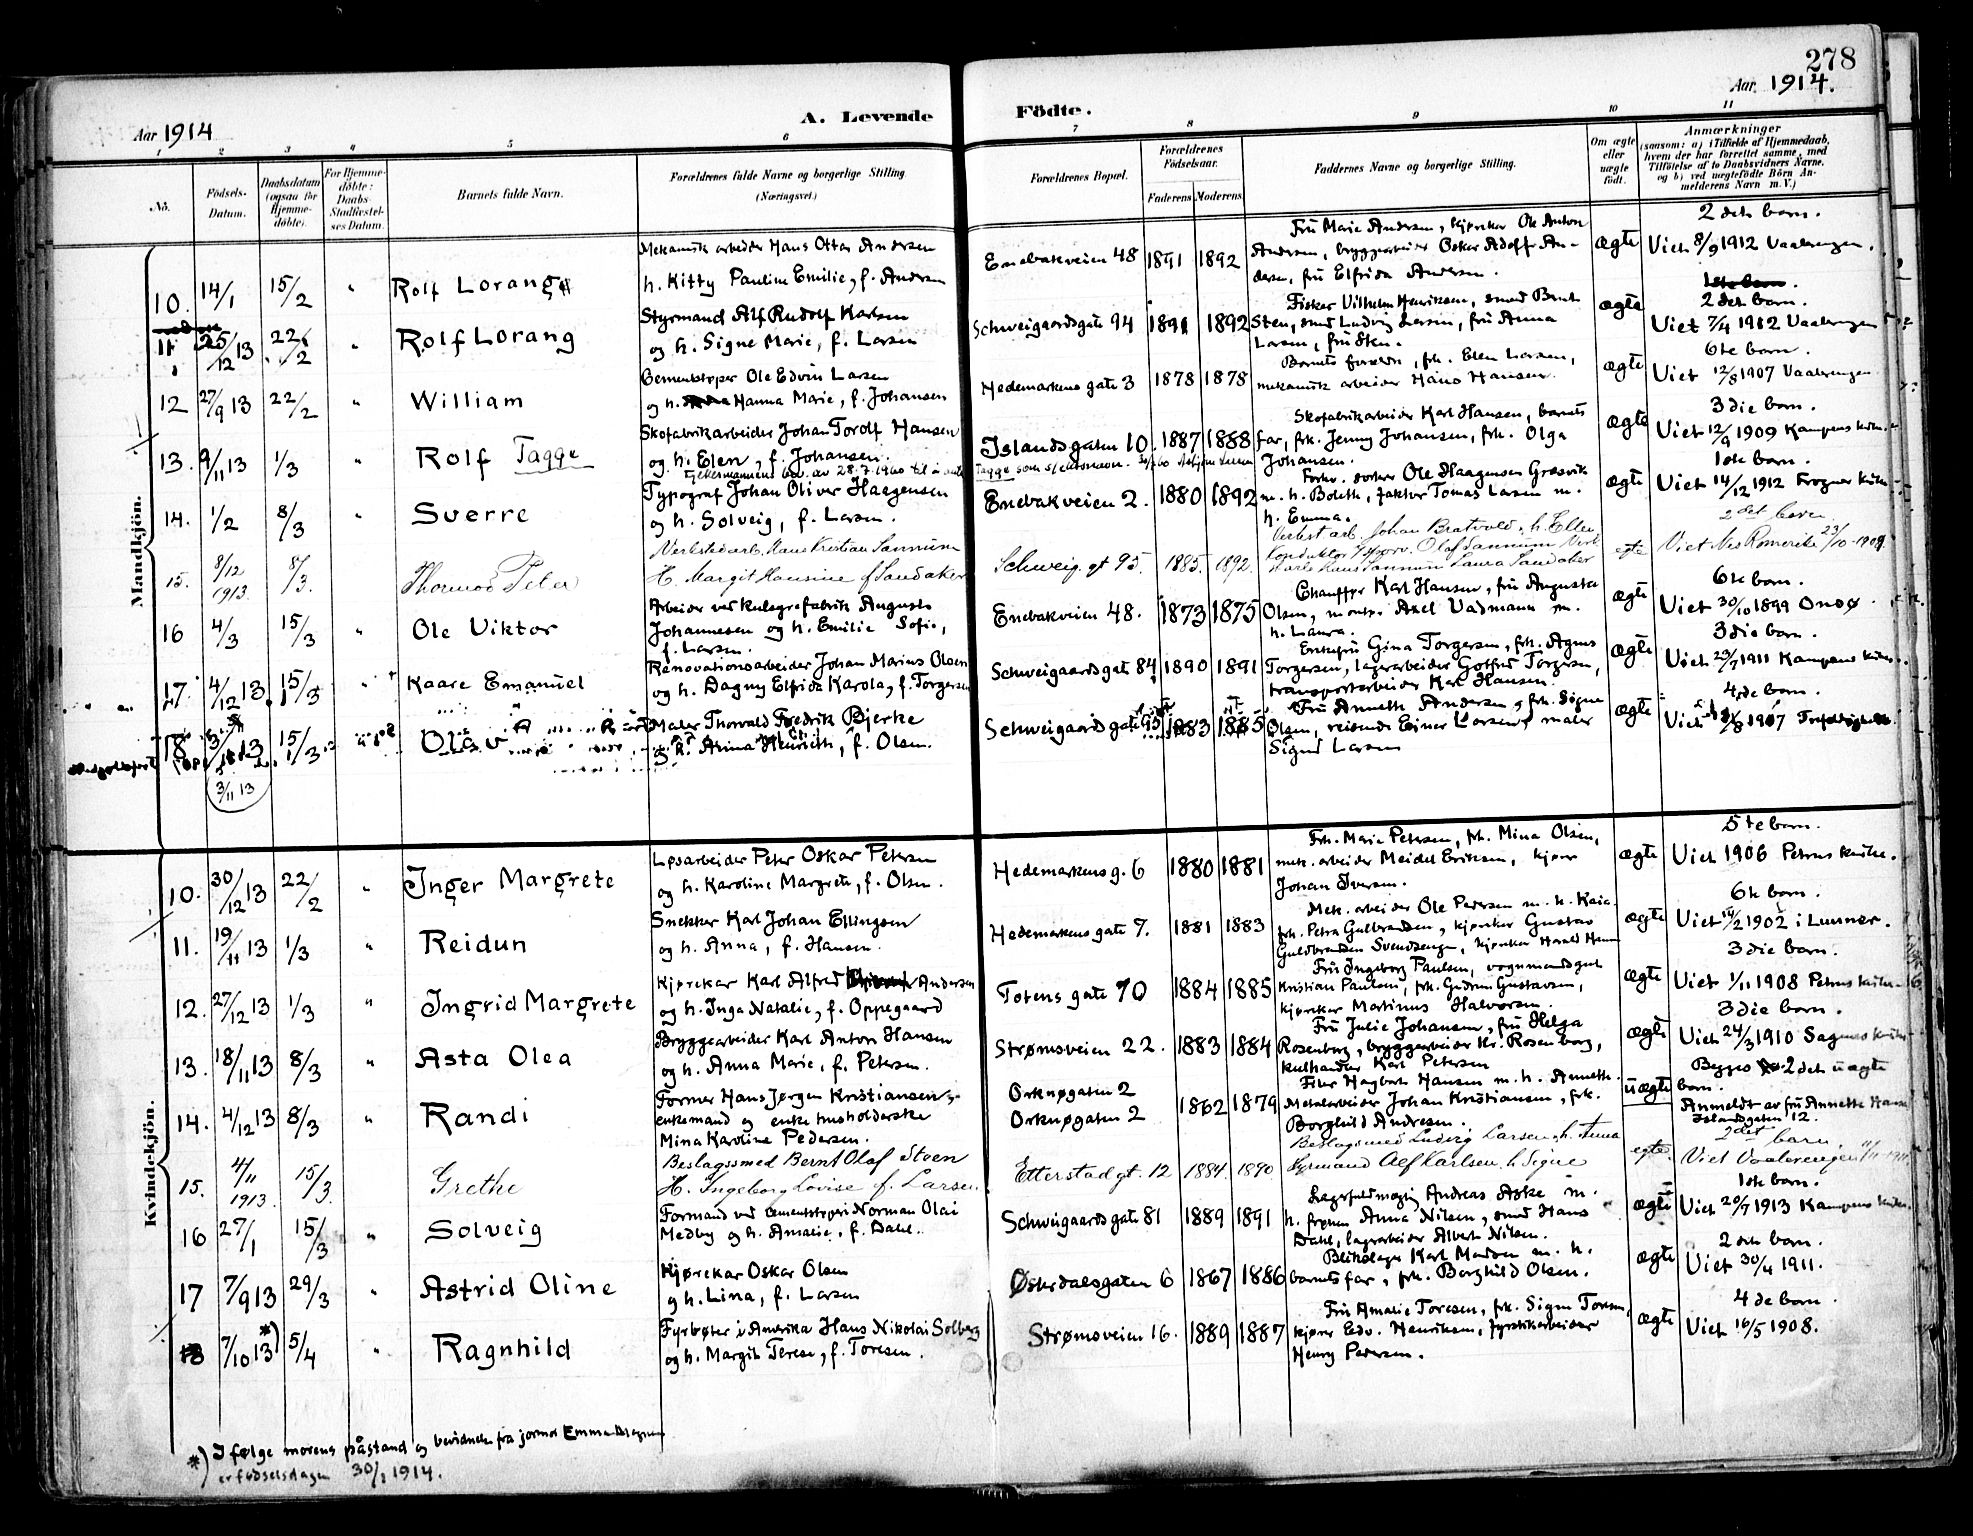 278
Aar 1914.
Aar 1914
A. Levende Födte.
1 2 3 4 5 6 7 8 9 10 11
No.
Födsels-Datum.
Daabsdatum (ogsaa for Hjemme-döbte).
For Hjemme-döbte: Daabs-Stadfæstel-ses Datum.
Barnets fulde Navn.
Forældrenes fulde Navne og borgerlige Stilling.
(Næringsvei.)
Forældrenes Bopæl.
Forældrenes Födselsaar.
Faderens Moderens
Faddernes Navne og borgerlige Stilling.
Om ægte eller uægte født.
Anmærkninger
(saasom: a) i Tilfælde af Hjemmedaab,
hvem der har forrettet samme, med
Tilföielse af to Daabsvidners Navne,
og b) ved uægtefödte Börn An-
melderens Navn m. V.)
Mandkjön.
10. 14/1 15/2 " Rolf Lorang
Mekanisk arbeider Hans Ottar Andersen
h. Kitty Pauline Emilie, f. Andersen
Enebakveien 48 1891 1892
Fru Marie Andersen, kjørekar Ole Anton
Andersen, bryggearbeider Oskar Adolf An-
dersen, fru Elfrida Andersen.
ægte
2 det barn.
Viet 8/9 1912 Vaalerengen.
11 25/12 13 22/2 " Rolf Lorang
Styrmand Alf Rudolf Karlsen
og h. Signe Marie, f. Larsen
Schweigaardsgate 94 1891 1892
Fisker Vilhelm Henriksen, smed Bernt
Sten, smed Ludvig Larsen, fru Anna
Larsen, fru Sten.
ægte
1ste barn.
2 det barn.
Viet 7/4 1912 Vaalerengen
12 27/9 13 22/2 " William
Cementstøper Ole Edvin Larsen
og h. Hanna Marie, f. Johansen
Hedemarkens gate 3 1878 1878
Barnets forældre, frk. Elen Larsen,
mekanisk arbeider Hans Hansen.
ægte
6te barn.
Viet 12/8 1907 Vaalerengen
13. 9/11 13 1/3 " Rolf Tagge
Skofabrikarbeider Johan Torolf Hansen
og h. Elen, f. Johansen.
Fylkesmannens bev. av 28.7.1960 til å anta
Tagge som slektsnavn.
Islandsgaten 10. 1887 1888
Skofabrikarbeider Karl Hansen, barnets
far, frk. Jenny Johansen, frk. Olga
Johansen.
ægte
3 die barn.
Viet 12/9 1909 Kampens kirke.
14. 1/2 8/3 " Sverre
Typograf Johan Oliver Haagensen
og h. Solveig, f. Larsen.
Enebakveien 2. 1880 1892
Ole Haagensen Græsvik
m. h. Bolette, faktor Tomas Larsen m.
h. Emma.
ægte
1ste barn.
Viet 14/12 1912 Frogner kirke
15. 8/12 1913. 8/3. Thomod Peter
Verkstedarb. Hans Kristian Sannum
H. Margit Hansine f Sandaker
Schweig. gt 95. 1885. 1892.
Verkst arb. Johan Bratvold, h. Ellen
Konduktør Olaf Sannum
Laura Sandaker
egte
2 det barn
Viet Nes Romerike 23/10-1909.
16 4/3 15/3 " Ole Viktor
Arbeider ved kulsyrefabrik August
Johannesen og h. Emilie Sofie,
f. Larsen.
Enebakveien 48. 1873 1875
Chauffør Karl Hansen, fru Augusta
Olsen, montør Axel Vadmann m.
h. Laura.
ægte
6te barn.
Viet 30/10 1899 Onsø.
17. 4/12 13. 15/3 " Kaare Emanuel
Renovationsarbeider Johan Marius Olsen
og h. Dagny Elfrida Karola, f. Torgersen
Schweigaardsgate 84 1890 1891
Enkefru Gina Torgersen, frk. Agnes
Torgersen, lagerarbeider Gotfred Torgersen,
transportarbeider Karl Hansen.
ægte
3 die barn.
Viet 29/7 1911 Kampens kirke.
18 15/3
3/11 13
Maler Thorvald Fredrik Bjerke
og h. Anna Henriette, f. Olsen.
Schweigaardsgate 95 1883 1885
Fru Annette Andersen, frk. Signe
Olsen, reisende Einer Larsen, maler
Sigurd Larsen
ægte
4de barn.
1907
Kvindekjön.
10. 30/12 13 22/2 " Inger Margrete
Løsarbeider Peter Oskar Petersen
og h. Karoline Margrete, f. Olsen.
Hedemarkensg. 6 1880 1881
Frk. Marie Petersen, frk. Mina Olsen,
mek. arbeider Meidel Eriksen, kjører
Johan Iversen.
ægte
5 te barn.
Viet 1906 Petrus kirke.
11. 19/11 13 1/3 " Reidun
Snekker Karl Johan Ellingsen
og h. Anna, f. Hansen.
Hedemarkens gate 7. 1881 1883
Mek. arbeider Ole Pedersen m. h. Kaia,
frk. Petra Gulbrandsen, kjørekar Gustav
Guldbrandsen Svendsenge, kjørekar Harald Hansen
ægte
6te barn.
Viet 14/2 1902 i Lunner.
12. 27/12 13 1/3 " Ingrid Margrete
Kjørekar Karl Alfred Andersen
og h. Inga Natalie, f. Oppegaard
Totens gate 10 1884 1885
Fru Ingeborg Paulsen, vognmand
Kristian Paulsen, frk. Gudrun Gustavsen,
kjørekar Martinus Halvorsen.
ægte
3 die barn.
Viet 1/11 1908 Petrus kirke.
13. 18/11 13 8/3 " Asta Olea
Bryggearbeider Karl Anton Hansen
og h. Anna Marie, f. Petersen.
Strømsveien 22. 1883 1884
Fru Julie Johansen, fru Helga
Rosenborg, bryggearbeider Kr. Rosenborg,
kulhandler Karl Petersen
ægte
3 die barn.
Viet 24/3 1910 Sagenes kirke
14. 4/12 13 8/3 " Randi
Former Hans Jørgen Kristiansen,
enkemand og enke husholderske
Mina Karoline Pedersen.
Orknøgaten 2
Orknøgaten 2
1862 1879
Filer Hagbart Hansen m. h. Annette.
Metalarbeider Johan Kristiansen, frk.
Borghild Andresen.
uægte
Begges 2 det uægte
barn.
Anmeldt av fru Annette Hansen
Islandsgaten 12.
15. 4/11 1913. 15/3. Grethe
Beslagssmed Bernt Olaf Steen
H. Ingeborg Lovise f. Larsen.
Etterstadgt. 12 1884. 1890
Beslagsmed Ludvig Larsen, h. Anna
Styrmand Alf Karlsen, h. Signe
egte.
2 det barn.
Viet Vaalerengen
16 27/1 15/3 " Solveig
Formand ved cementstøperi Norman Olai
Medby og h. Amalie, f. Dahl.
Schweigaardsgate 81 1889 1891
Andreas Aske m.
h. frøken Anna Nilsen, smed Hans
Dahl, lagerarbeider Albert Nilsen.
ægte
1ste barn.
Viet 20/7 1913 Kampens kirke.
17 7/9 13 29/3 " Astrid Oline
Kjørekar Oskar Olsen
og h. Lina, f. Larsen
Østerdalsgaten 6 1867 1886
Blikslager Karl Madsen m. h.
barnets far, frk. Borghild Olsen.
ægte
2 det barn.
Viet 30/4 1911.
18 7/10 13 *) 5/4 " Ragnhild
Fyrbøter i Amerika Hans Nikolai Solberg
og h. Margit Terese, f. Toresen.
Strømsveien 16. 1889 1887
Fru Amalie Toresen, frk. Signe Toresen,
kjører Edv. Henriksen, fyrstikarbeider
Henry Pedersen.
ægte
4 de barn.
Viet 16/5 1908.
*) I følge morens påstand og bevidnelse fra jormor Emma
er fødselsdagen 30/1 1914.